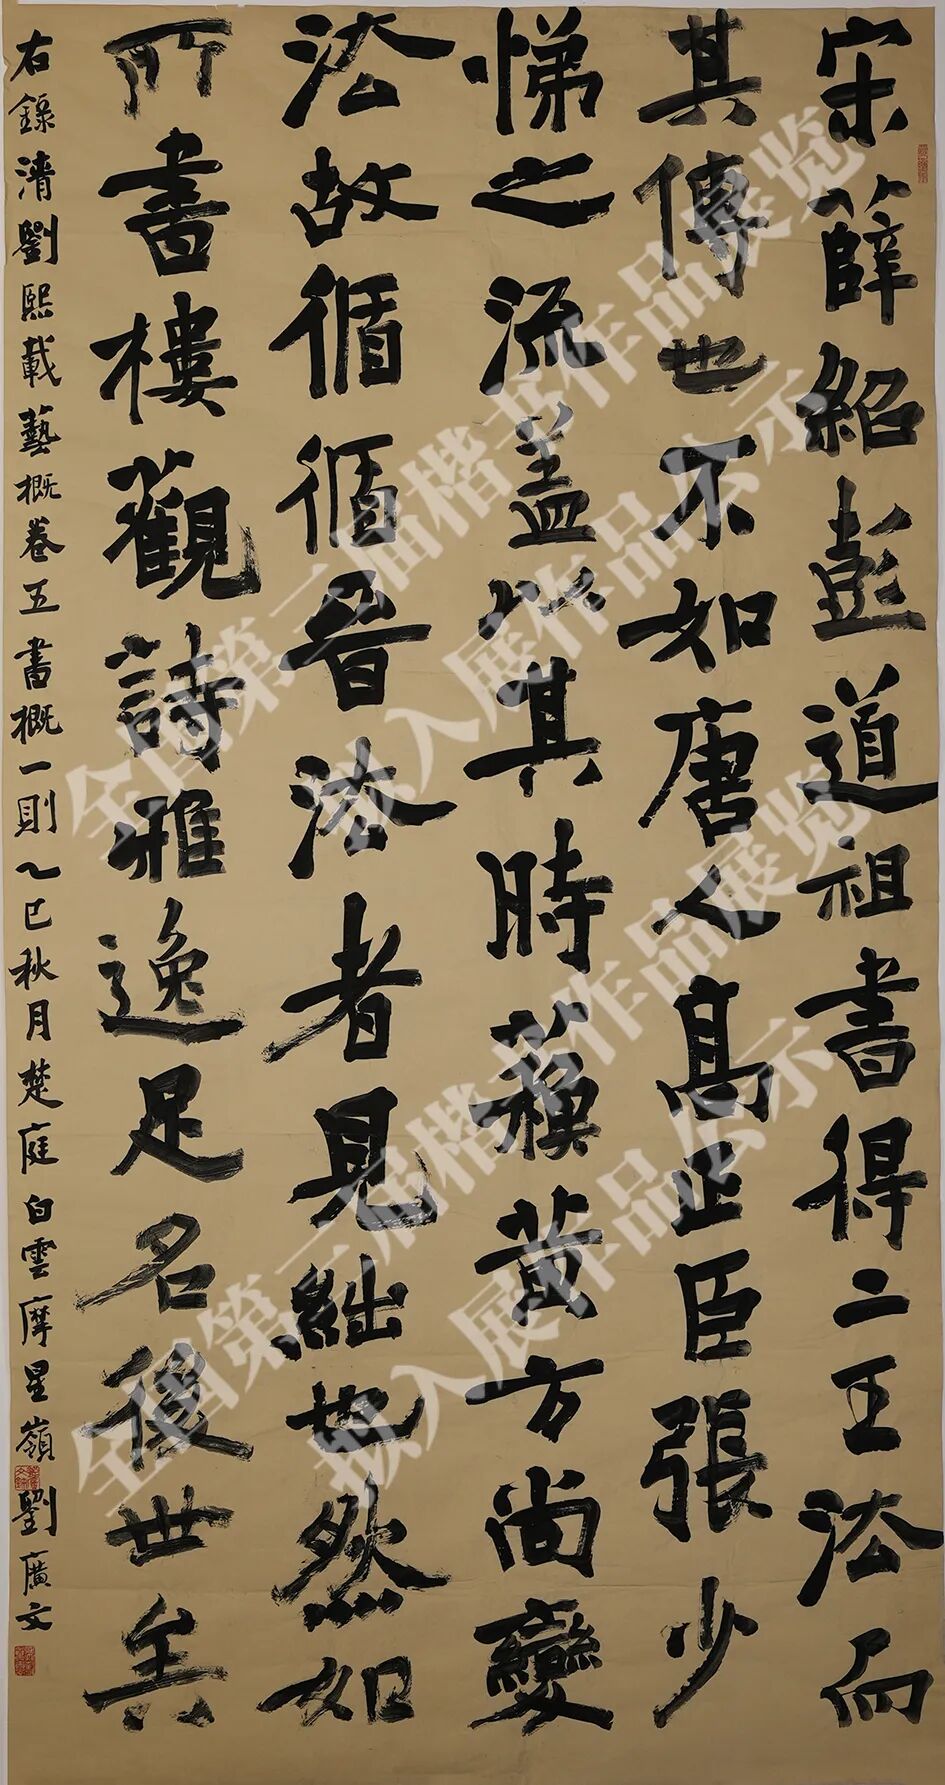 宋薛紹彭道祖書得二王法而
其傳也不如唐人髙正臣張少
悌之流盖以其時蘓黄方尚變
法故循循晉法者見絀也然如
所書樓觀詩雅逸足名後世矣
右錄清劉熙載藝概卷五書概一則乙巳秋月楚庭白雲摩星嶺劉廣文
全国第三届楷书作品展览
拟入展作品公示
全国第三届楷书作品展览
拟入展作品公示